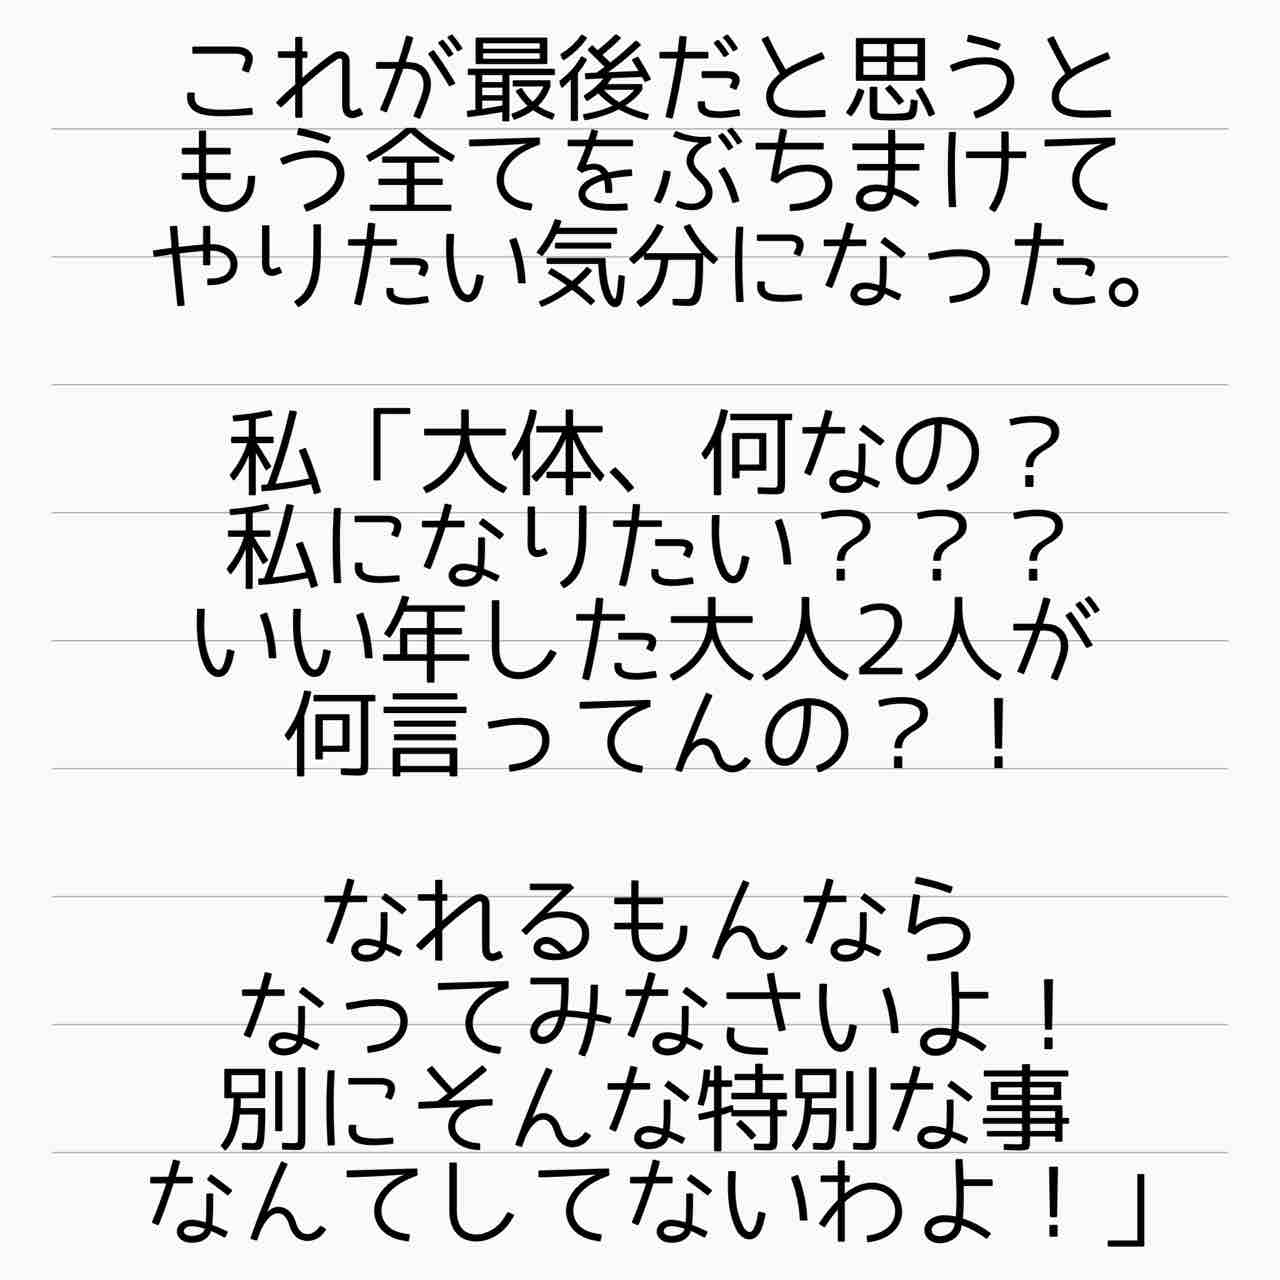 これが最後だと思うと
もう全てをぶちまけて
やりたい気分になった。
私「大体、何なの？
私になりたい？？？
いい年した大人2人が
何言ってんの？！
なれるもんなら
なってみなさいよ！
別にそんな特別な事
なんてしてないわよ！」